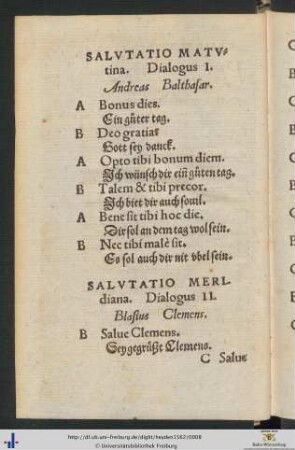 SALVTATIO MATV-
tina. Dialogus I.
Andreas Balthasar.
A Bonus dies.
Ein gůter tag.
B Deo gratias
Gott sey danck.
A Opto tibi bonum diem.
Ich wünsch dir ein gůten tag.
B Talem & tibi precor.
Ich biet dir auch souil.
A Bene sit tibi hoc die.
Dir sol an dem tag wol sein.
B Nec tibi malè sit.
Es sol auch dir nit vbel sein.
SALVTATIO MERI-
diana. Dialogus II.
Blasius Clemens.
B Salue Clemens.
Sey gegrüßt Clemens.
C Salue
http://dl.ub.uni-freiburg.de/diglit/heyden1562/0008
© Universitätsbibliothek Freiburg
Baden-Württemberg